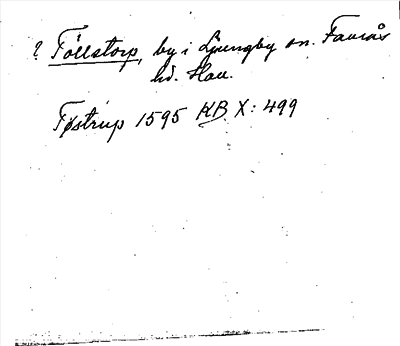 ? Töllstorp, by i Ljungby sn. Faurås
hd. Hall.
Tøstrup 1595 KB X: 499